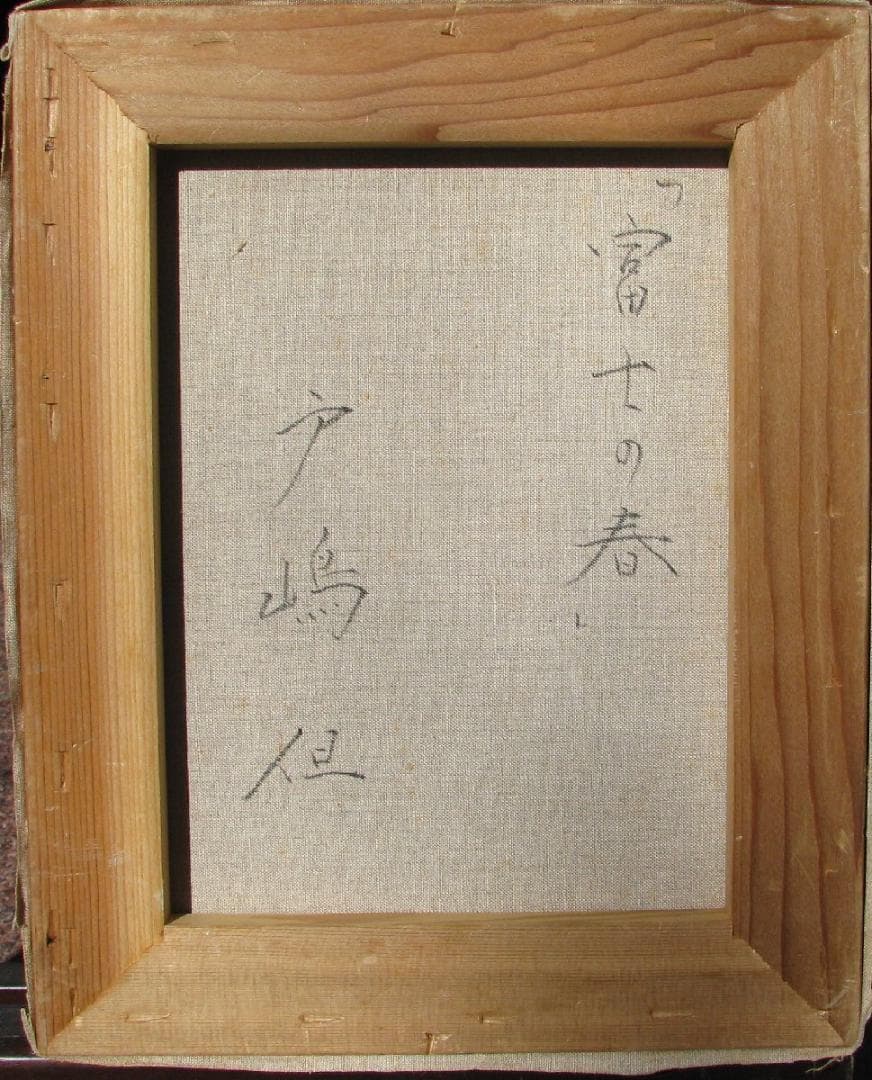 「富士の春」
戸嶋但